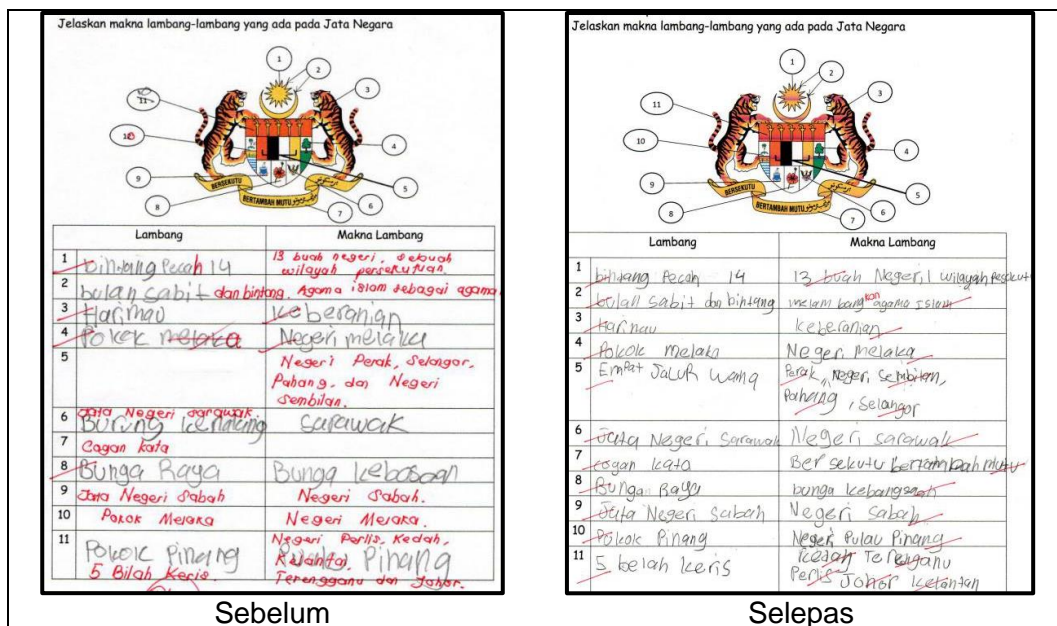 Jelaskan makna lambang-lambang yang ada pada Jata Negara
1
2
3
11
10
4
9
5
6
8
7
BERSEKUTU
BERTAMBAH MUTU
Lambang Makna Lambang
1 bintang Pecah 14 13 buah negeri, sebuah
wilayah persekutuan.
2 bulan sabit dan bintang. Agama islam sebagai agama
3 Harimau keberanian
4 Pokok melaka Negeri melaka
5 Negeri Perak, Selangor,
Pahang, dan Negeri
Sembilan.
Jata Negeri Sarawak
6 Burung kenalang Sarawak
7 Cogan kata
8 Bunga Raya Bunga
9 Jata Negeri Sabah Negeri Sabah.
10 Pokok Melaka Negeri Melaka.
11 Pokok Pinang Pulau Pinang
5 Bilah Keris. Negeri Perlis, Kedah,
Kelantan,
Terengganu dan Johor.
Sebelum
Jelaskan makna lambang-lambang yang ada pada Jata Negara
1
2
3
11
10
4
9
5
6
8
7
BERSEKUTU
BERTAMBAH MUTU
Lambang Makna Lambang
1 bintang Pecah 14 13 buah Negeri, 1 wilayah
2 bulan sabit dan bintang melambangkan agama Islam
3 Harimau keberanian
4 Pokok melaka Negeri Melaka
5 Empat Jalur warna Perak, Negeri Sembilan,
Pahang, Selangor
6 Jata Negeri Sarawak Negeri sarawak
7 cogan kata Bersekutu bertambah mutu
8 Bungan Raya bunga kebangsaan
9 Jata Negeri Sabah Negeri Sabah
10 Pokok Pinang Negeri Pulau Pinang
11 5 belah keris Kedah Terengganu
Perlis Johor Kelantan
Selepas